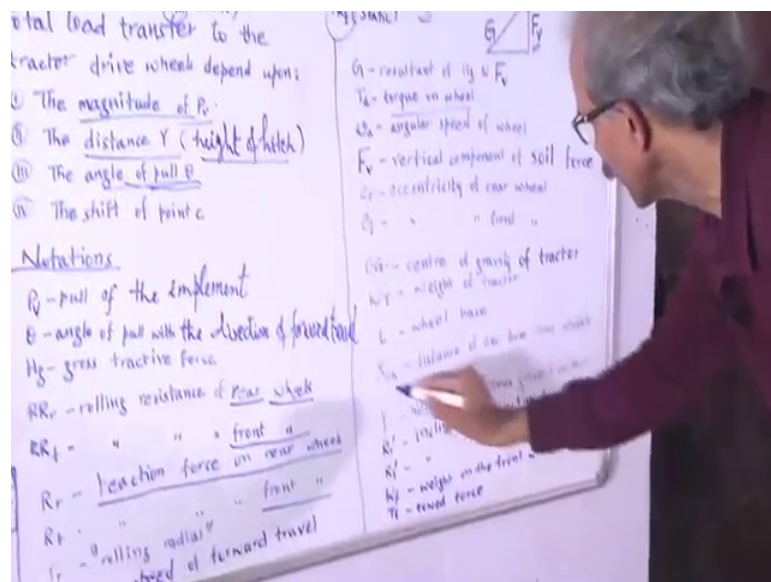 otal load transfer to the
tractor drive wheels depend upon:
(i) The magnitude of Pv.
(ii) The distance Y (height of hitch)
(iii) The angle of pull θ
(iv) The shift of point c
Notations
Pv - pull of the implement
θ - angle of pull with the direction of forward travel
Hg - gross tractive force
RRr - rolling resistance of rear wheels
RRf - " " " front "
Rr - Reaction force on rear wheels
Rf - " " " front "
rr - "rolling radius"
speed of forward travel
G
Fv
G - resultant of Hg & Fv
Ta - torque on wheel
ωa - angular speed of wheel
Fv - vertical component of soil force
er - eccentricity of rear wheel
ef - " " front "
CG - centre of gravity of tractor
WT - weight of tractor
L - wheel base
distance of from rear wheels
Y
Rr'
Rf' - "
Wf - weight on the front "
Tf - towed force